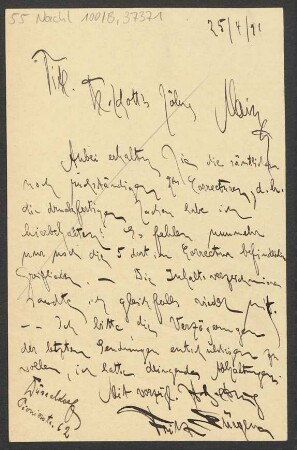 55 Nachl 100/B, 37371
25/4/91
Titl.
B. Schott's Söhne Mainz
Anbei erhalten Sie die sämtlichen
noch rückständigen Correcturen, d. h.
die druckfertigen Sachen habe ich
hierbehalten. Es fehlen nunmehr
nur noch die 5 dort in Correctur befindlichen
— Die Inhaltsverzeichnisse
sandte ich gleichfalls wieder mit.
— Ich bitte die Verzögerungen
der letzten Sendungen entschuldigen zu
wollen, ich hatte dringende Abhaltungen.
Mit vorzügl. Hochachtung
Fritz
Düsseldorf
62